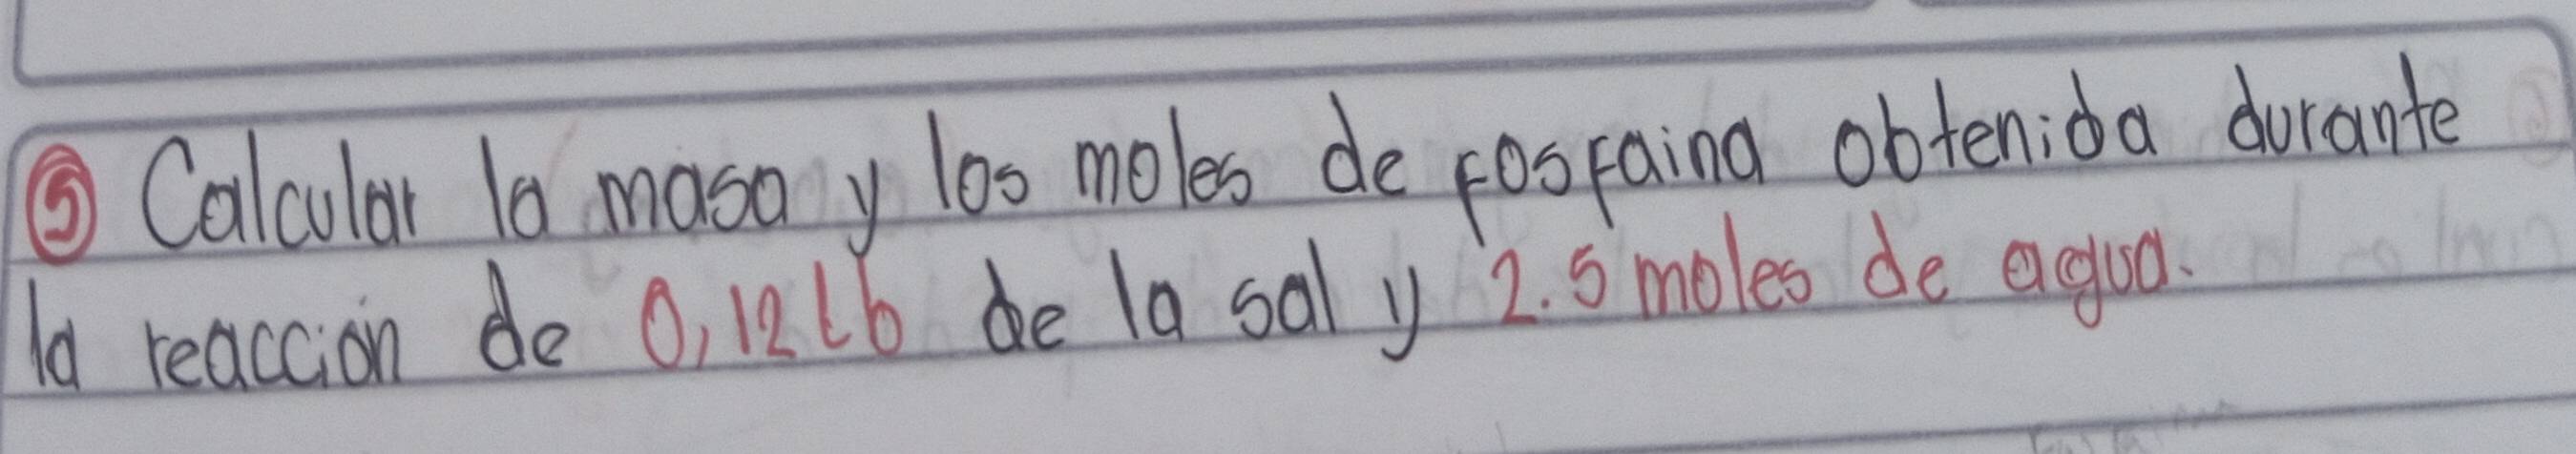 ⑤ Calcular la masa y los moles de fosfaina obtenida durante
la reaccion de 0,12 Lb de la sal y 2.5 moles de agua.